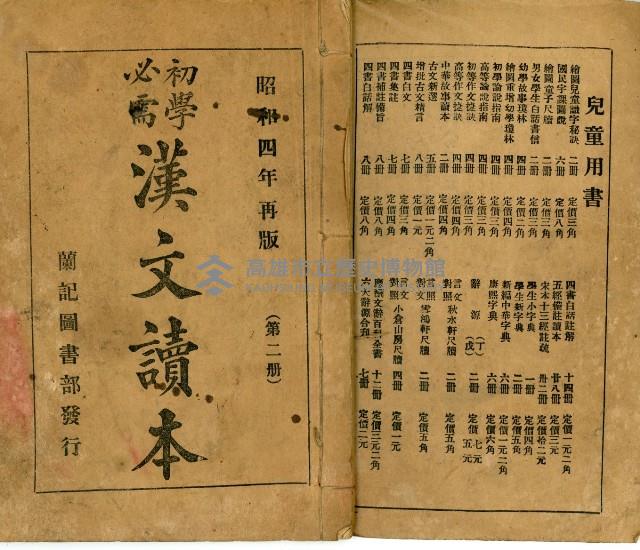 兒童用書
繪圖兒童識字秘訣 二冊 定價三角
國民字課圖說 六冊 定價八角
繪圖童子尺牘 二冊 定價三角
男女學生白話書信 二冊 定價三角
幼學故事瓊林 四冊 定價二角
繪圖重增幼學瓊林 四冊 定價四角
初學論說指南 四冊 定價三角
高等論說指南 四冊 定價三角
初等作文捷訣 四冊 定價三角
高等作文捷訣 四冊 定價四角
中華故事讀本 二冊 定價四角
古文新選 五冊 定價一元二角
增批古文精言 八冊 定價一元
四書白文 七冊 定價三角
四書集註 七冊 定價四角
四書補註備旨 八冊 定價八角
四書白話解 八冊 定價八角
四書白話註解 十四冊 定價一元二角
五經備註讀本 廿八冊 定價三元
宋本十三經註疏 卅二冊 定價拾二元
學生小字典 一冊 定價四角
學生新字典 二冊 定價五角
新編中華字典 六冊 定價一元二角
康熙字典 六冊 定價六角
辭源 (丁) (戊) 二冊 定價 七元 五元
言文對照 秋水軒尺牘 二冊 定價五角
言文對照 雪鴻軒尺牘 二冊 定價五角
言文對照 小倉山房尺牘 四冊 定價一元
應酬文辭百科全書 十二冊 定價三元二角
六大辭源合刊 七冊 定價二元
昭和四年再版
(第二冊)
初學必需
漢文讀本
蘭記圖書部發行
高雄市立歷史博物館